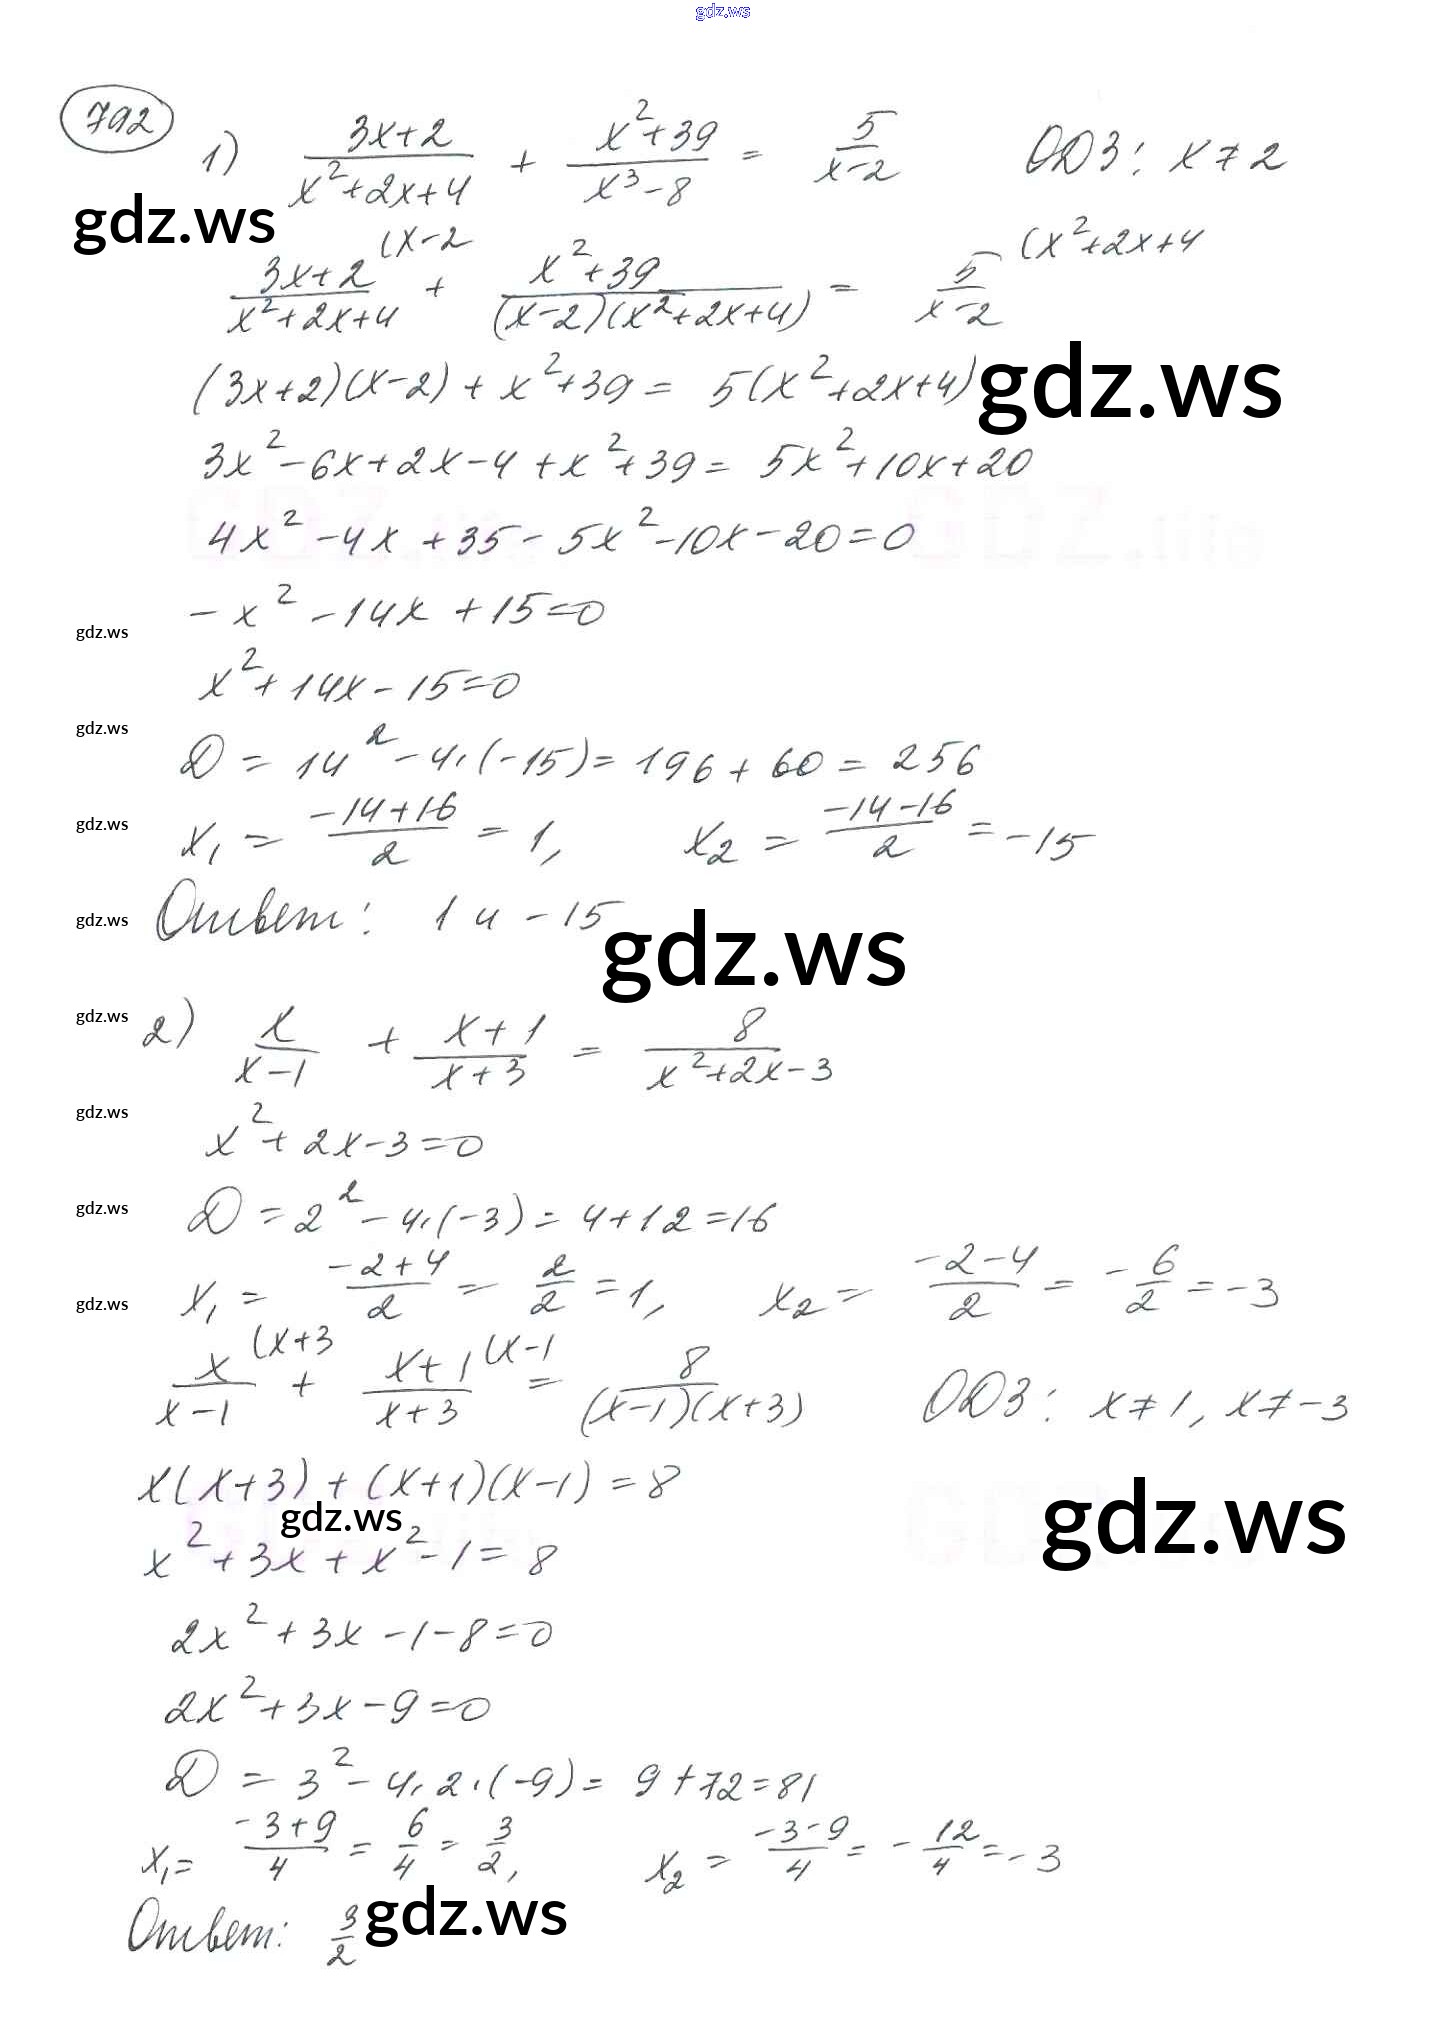 gdz.ws
792
1) (3x+2)/(x²+2x+4) + (x²+39)/(x³-8) = 5/(x-2) ОДЗ: x≠2
gdz.ws
(3x+2)/(x²+2x+4) (x-2 + (x²+39)/((x-2)(x²+2x+4)) = 5/(x-2) (x²+2x+4
(3x+2)(x-2) + x²+39 = 5(x²+2x+4) gdz.ws
3x²-6x+2x-4+x²+39 = 5x²+10x+20
4x²-4x+35-5x²-10x-20=0
-x²-14x+15=0
gdz.ws
x²+14x-15=0
gdz.ws
D = 14²-4·(-15) = 196+60 = 256
gdz.ws x₁ = (-14+16)/2 = 1, x₂ = (-14-16)/2 = -15
gdz.ws Ответ: 1 и -15 gdz.ws
gdz.ws 2) x/(x-1) + (x+1)/(x+3) = 8/(x²+2x-3)
gdz.ws
x²+2x-3=0
gdz.ws D = 2²-4·(-3) = 4+12 = 16
gdz.ws x₁ = (-2+4)/2 = 2/2 = 1, x₂ = (-2-4)/2 = -6/2 = -3
x/(x-1) (x+3 + (x+1)/(x+3) (x-1 = 8/((x-1)(x+3)) ОДЗ: x≠1, x≠-3
x(x+3) + (x+1)(x-1) = 8
gdz.ws gdz.ws
x²+3x+x²-1=8
2x²+3x-1-8=0
2x²+3x-9=0
D = 3²-4·2·(-9) = 9+72=81
x₁= (-3+9)/4 = 6/4 = 3/2, x₂ = (-3-9)/4 = -12/4 = -3
Ответ: 3/2 gdz.ws